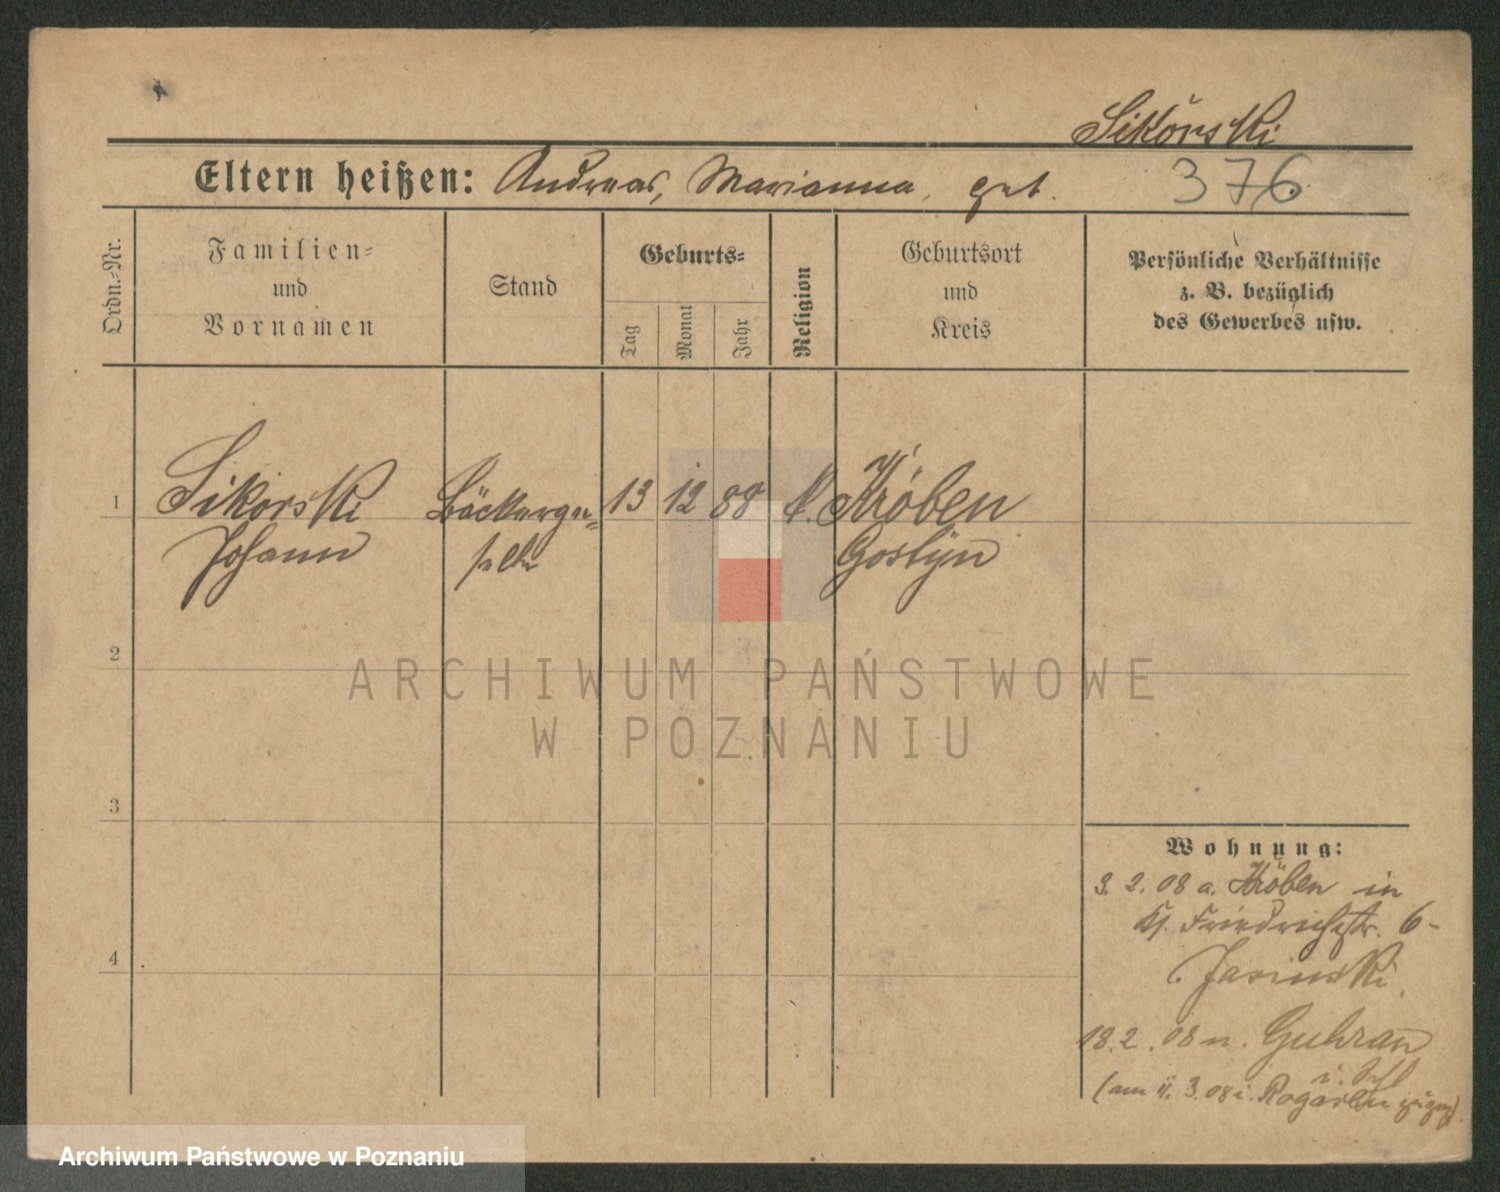 Sikorski
Eltern heißen: Andreas, Marianna, geb.
376
Ordn.-Nr.
Familien-
und
Vornamen
Stand
Geburts-
Tag
Monat
Jahr
Religion
Geburtsort
und
Kreis
Persönliche Verhältnisse
z. B. bezüglich
des Gewerbes usw.
1 Sikorski Bäckerge- 13 12 88 k. Kröben
Johann selle Gostyn
2
3
4
ARCHIWUM PAŃSTWOWE
W POZNANIU
Wohnung:
3. 2. 08 a. Kröben in
Friedrichstr. 6-
Jasinski
18. 2. 08 n. Guhrau
(am 11. 3. 08 i. Rogasen
Archiwum Państwowe w Poznaniu